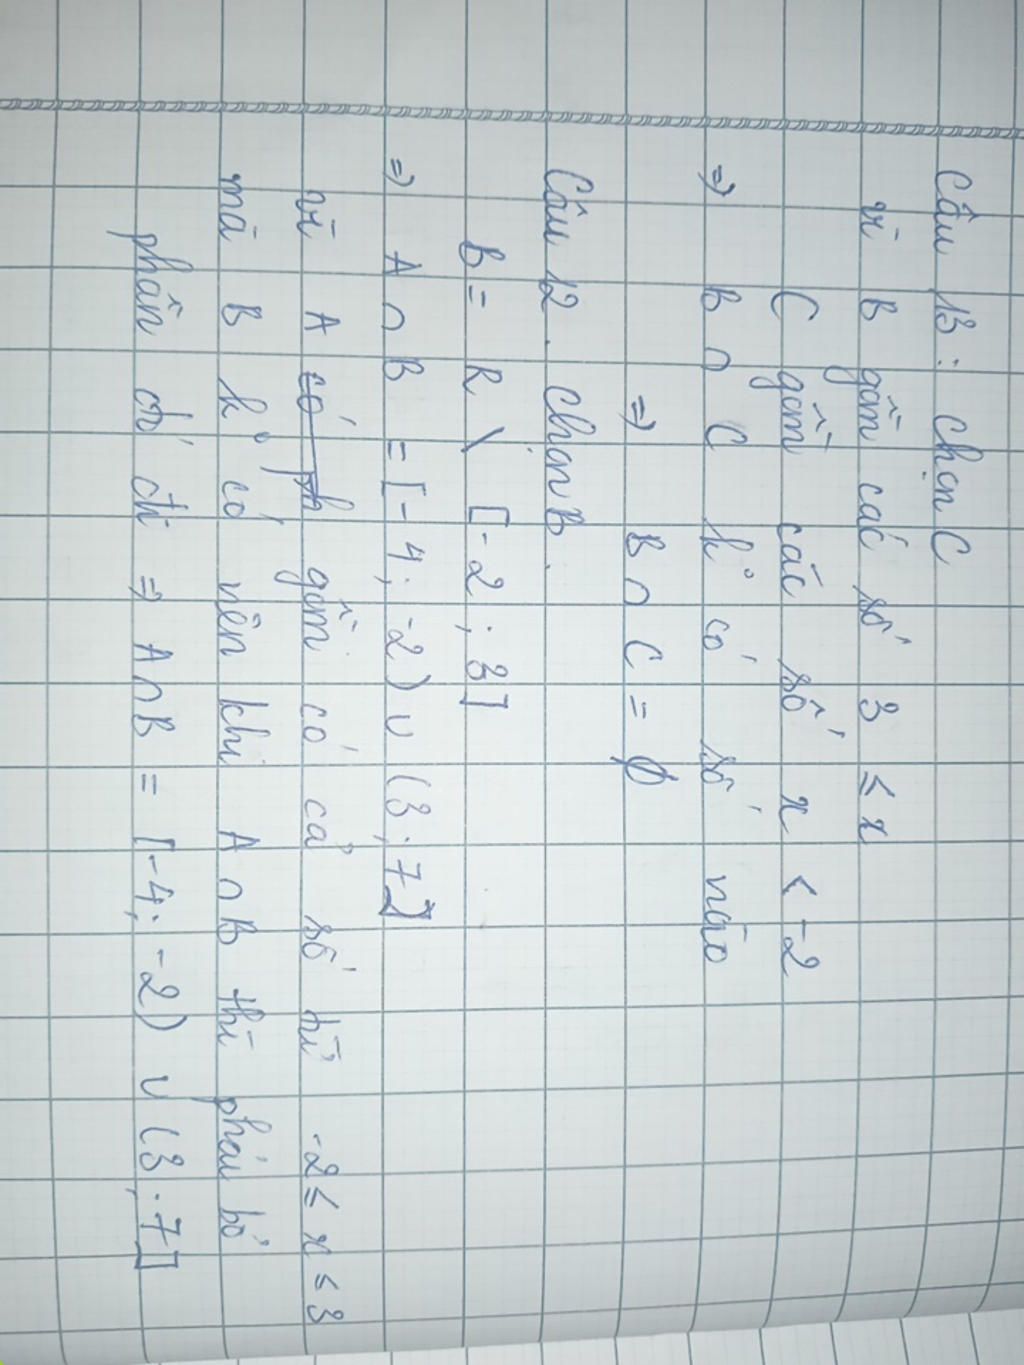 Câu 13 : chọn C
vì B gồm các số 3 ≤ x
C gồm các số x < -2
=> B ∩ C k° có số nào
=> B ∩ C = ∅
Câu 12 . chọn B .
B = R \ [-2 ; 3]
=> A ∩ B = [-4; -2) ∪ (3; 7]
vì A gồm có cả số từ -2 ≤ x ≤ 3
mà B k° có nên khi A ∩ B thì phải bỏ
phần đó đi => A ∩ B = [-4; -2) ∪ (3; 7]